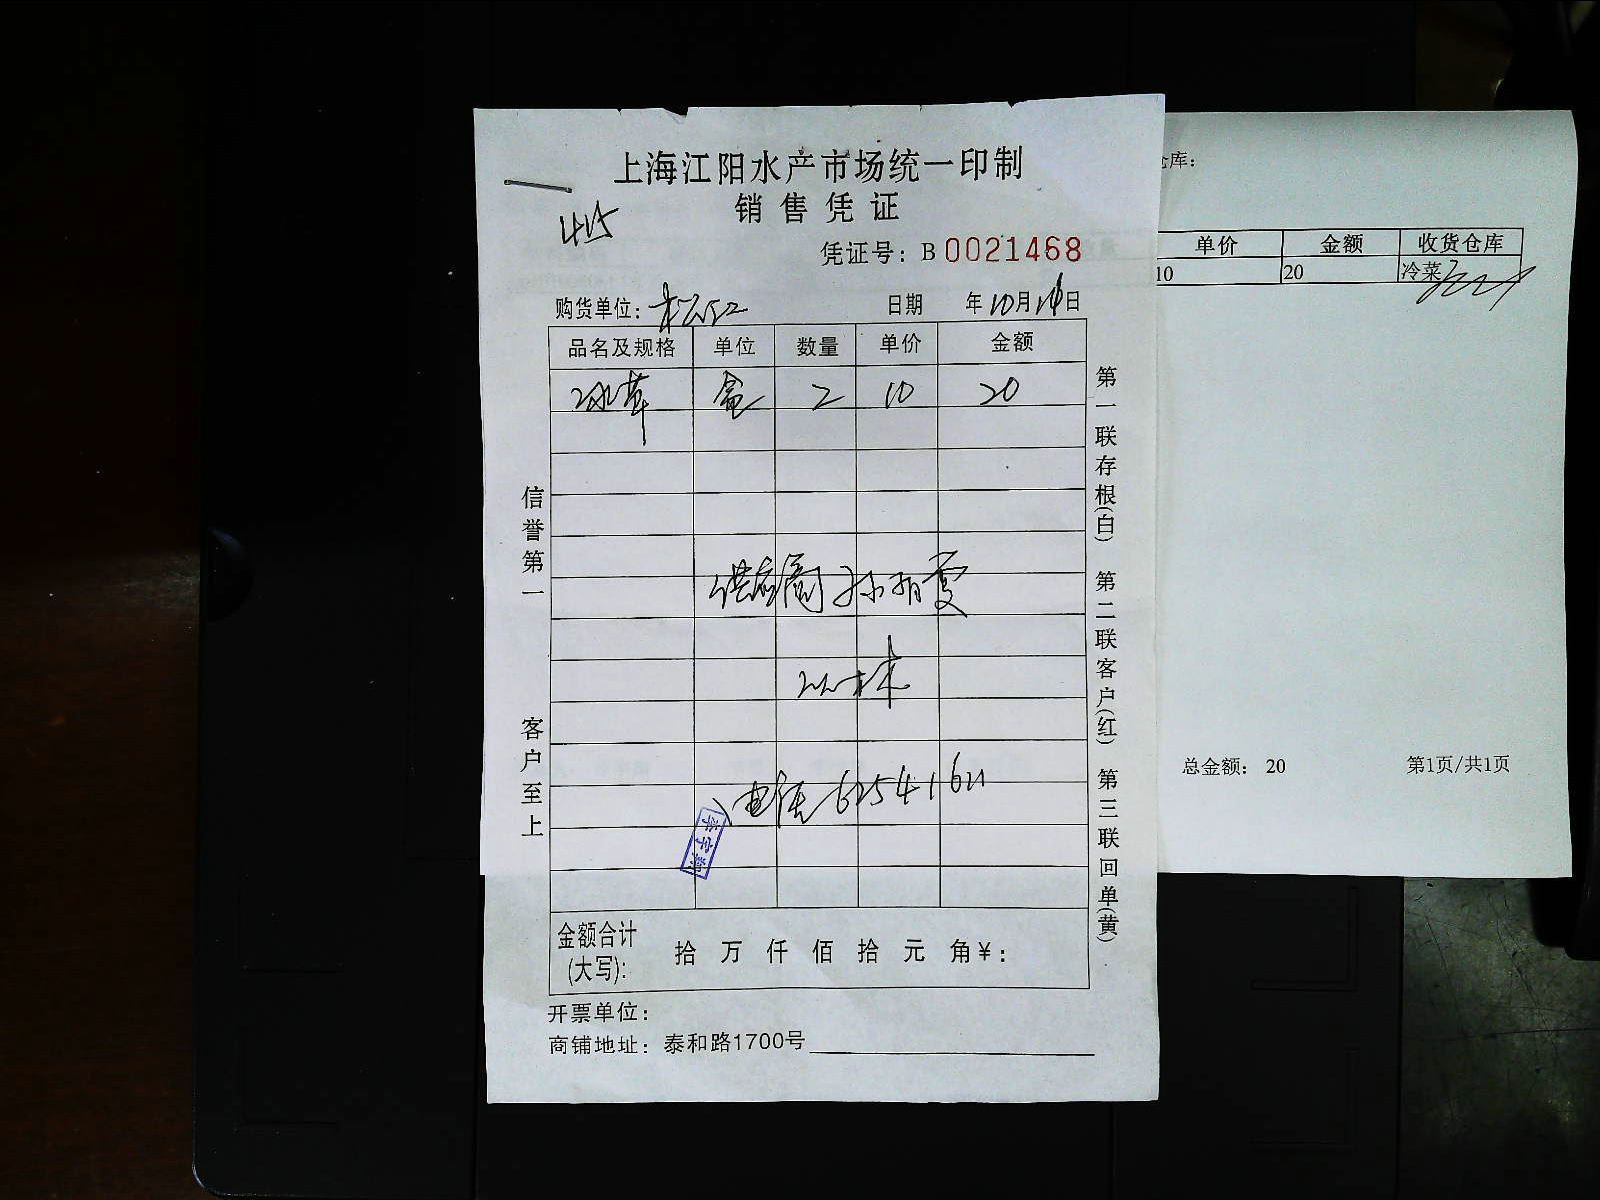 上海江阳水产市场统一印制
销售凭证
415
凭证号: B 0021468
购货单位: 松江 日期 年10月14日
品名及规格 单位 数量 单价 金额
冰草 盒 2 10 20
供应商 孙
电话 62541621
信誉第一
客户至上
李宇翔
第一联存根(白) 第二联客户(红) 第三联回单(黄)
金额合计(大写): 拾 万 仟 佰 拾 元 角 ¥:
开票单位:
商铺地址: 泰和路1700号
仓库:
单价 金额 收货仓库
10 20 冷菜
总金额: 20 第1页/共1页